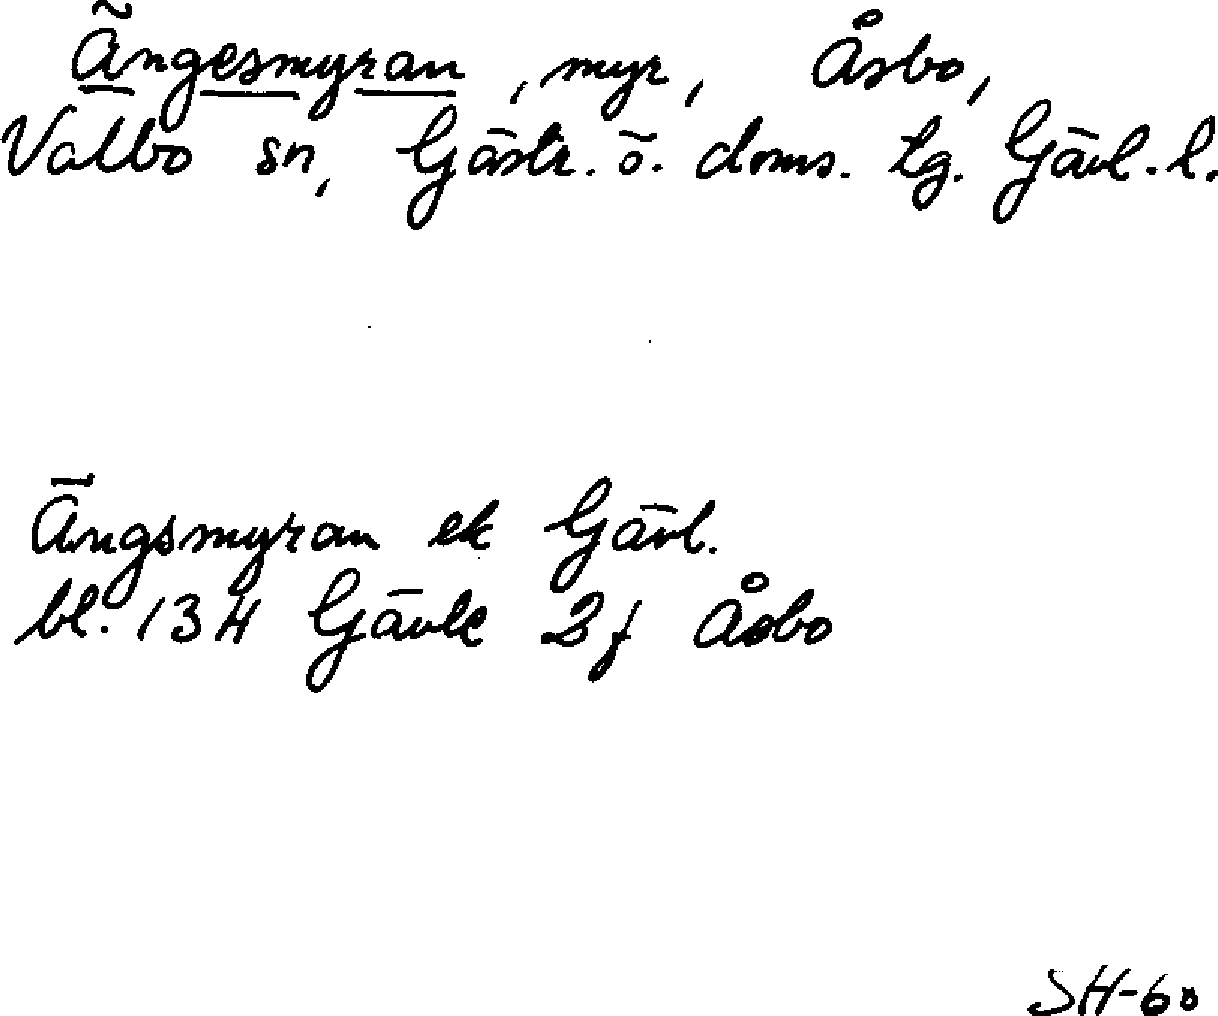 Ängesmyran, myr, Åsbo,
Valbo sn, Gästr. ö. doms. tg. Gävl. l.
Ängsmyran ek Gävl.
bl. 134 Gävle 2f Åsbo
SH-60